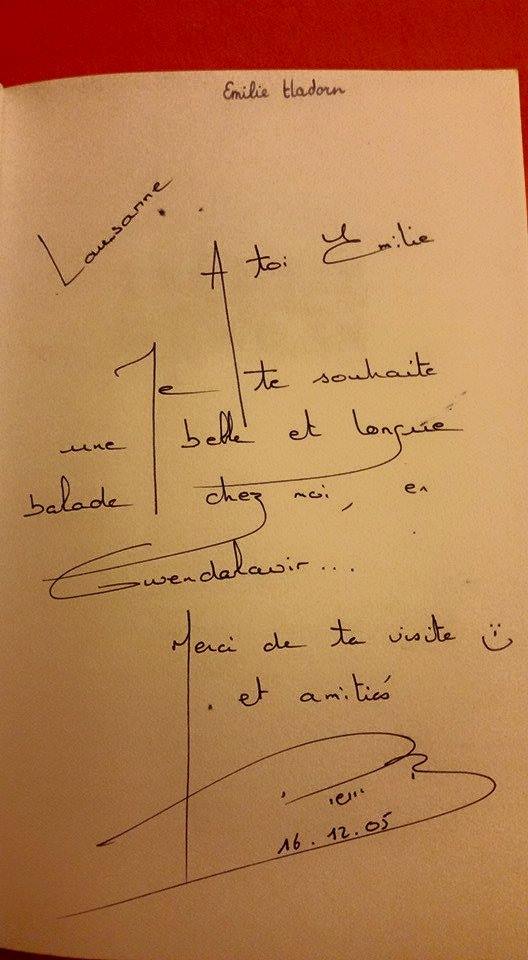 Emilie Hadorn
Lausanne
A toi Emilie
Je te souhaite
une belle et longue
balade chez moi, en
Gwendalavir...
Merci de ta visite :)
et amitiés
16.12.05